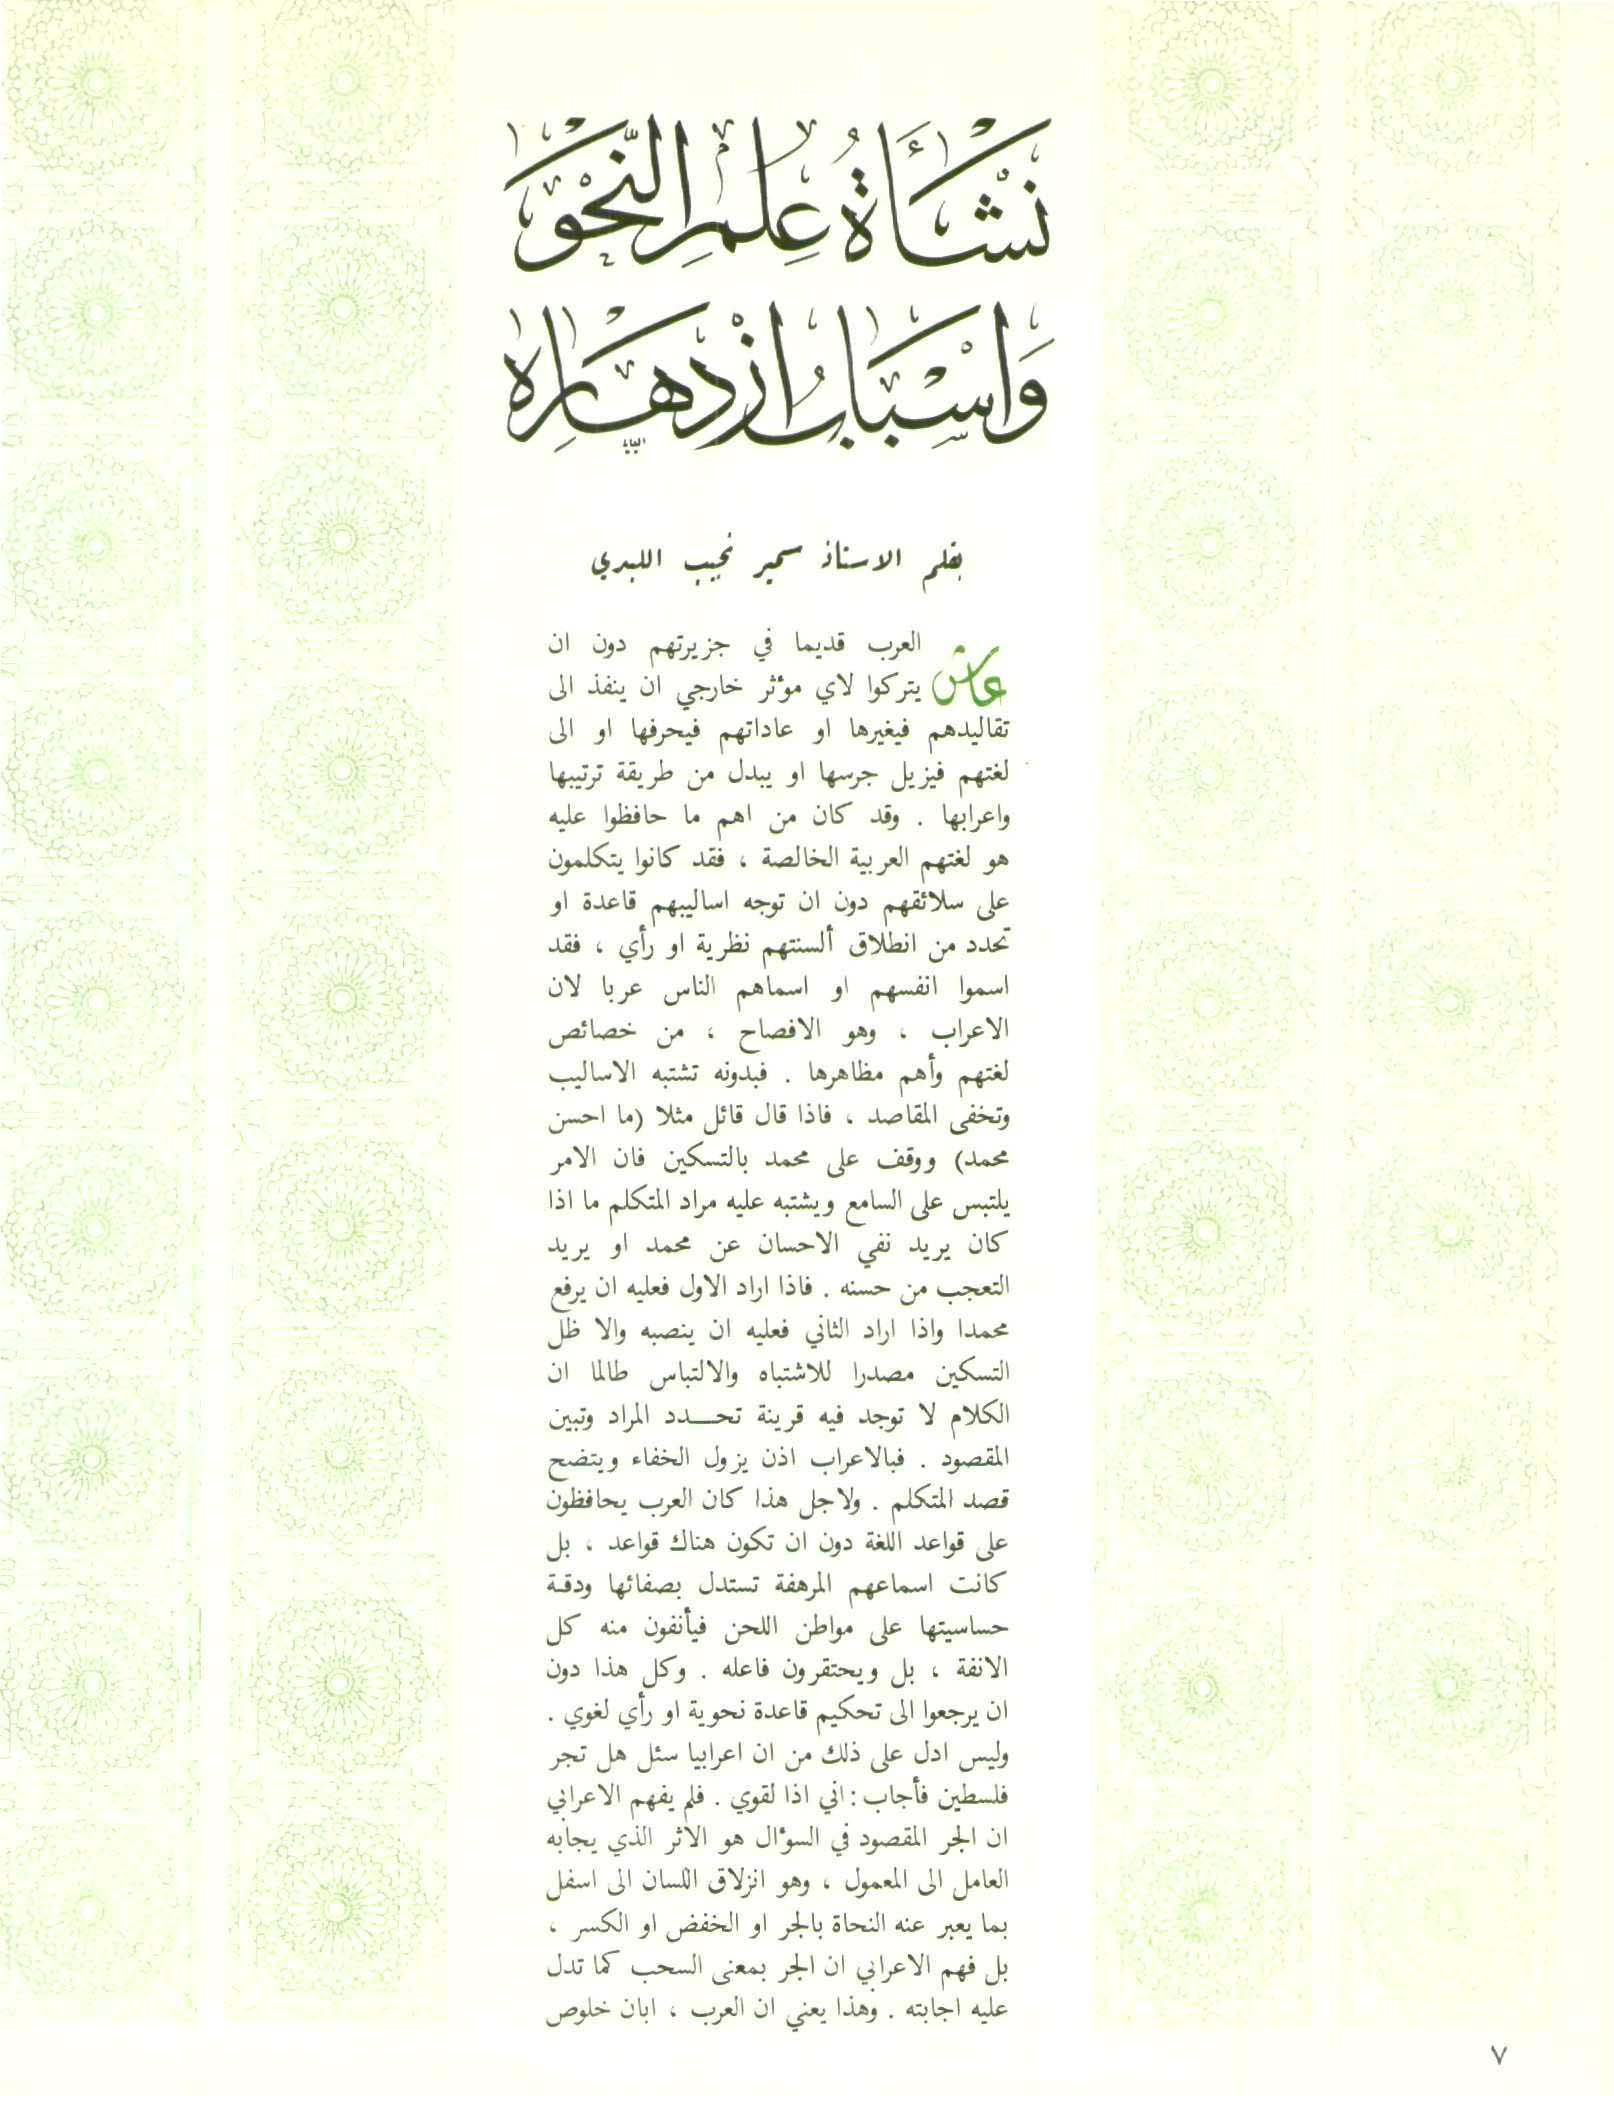 نَشْأَةُ عِلْمِ النَّحْوِ
وَاسْبَابُ ازْدِهَارِهِ
بقلم الاستاذ سمير نجيب اللبدي
عاش العرب قديما في جزيرتهم دون ان
يتركوا لاي مؤثر خارجي ان ينفذ الى
تقاليدهم فيغيرها او عاداتهم فيحرفها او الى
لغتهم فيزيل جرسها او يبدل من طريقة ترتيبها
واعرابها . وقد كان من اهم ما حافظوا عليه
هو لغتهم العربية الخالصة ، فقد كانوا يتكلمون
على سلائقهم دون ان توجه اساليبهم قاعدة او
تحدد من انطلاق ألسنتهم نظرية او رأي ، فقد
اسموا انفسهم او اسماهم الناس عربا لان
الاعراب ، وهو الافصاح ، من خصائص
لغتهم وأهم مظاهرها . فبدونه تشتبه الاساليب
وتخفى المقاصد ، فاذا قال قائل مثلا (ما احسن
محمد) ووقف على محمد بالتسكين فان الامر
يلتبس على السامع ويشتبه عليه مراد المتكلم ما اذا
كان يريد نفي الاحسان عن محمد او يريد
التعجب من حسنه . فاذا اراد الاول فعليه ان يرفع
محمدا واذا اراد الثاني فعليه ان ينصبه والا ظل
التسكين مصدرا للاشتباه والالتباس طالما ان
الكلام لا توجد فيه قرينة تحـــدد المراد وتبين
المقصود . فبالاعراب اذن يزول الخفاء ويتضح
قصد المتكلم . ولاجل هذا كان العرب يحافظون
على قواعد اللغة دون ان تكون هناك قواعد ، بل
كانت اسماعهم المرهفة تستدل بصفائها ودقة
حساسيتها على مواطن اللحن فيأنفون منه كل
الانفة ، بل ويحتقرون فاعله . وكل هذا دون
ان يرجعوا الى تحكيم قاعدة نحوية او رأي لغوي .
وليس ادل على ذلك من ان اعرابيا سئل هل تجر
فلسطين فأجاب : اني اذا لقوي . فلم يفهم الاعرابي
ان الجر المقصود في السؤال هو الاثر الذي يجابه
العامل الى المعمول ، وهو انزلاق اللسان الى اسفل
بما يعبر عنه النحاة بالجر او الخفض او الكسر ،
بل فهم الاعرابي ان الجر بمعنى السحب كما تدل
عليه اجابته . وهذا يعني ان العرب ، ابان خلوص
٧